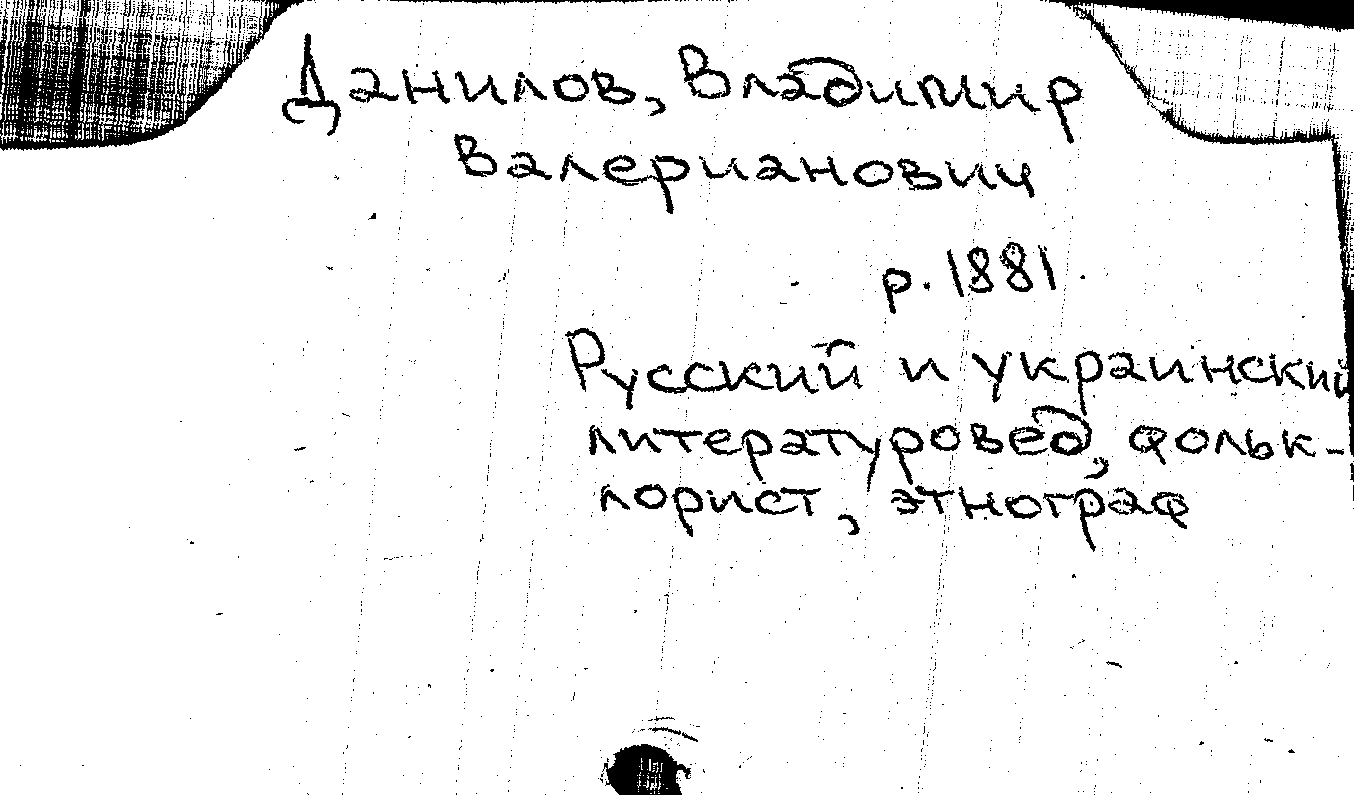 Данилов, Владимир
Валерианович
р. 1881.
Русский и украинский
литературовед, фольк-
лорист, этнограф